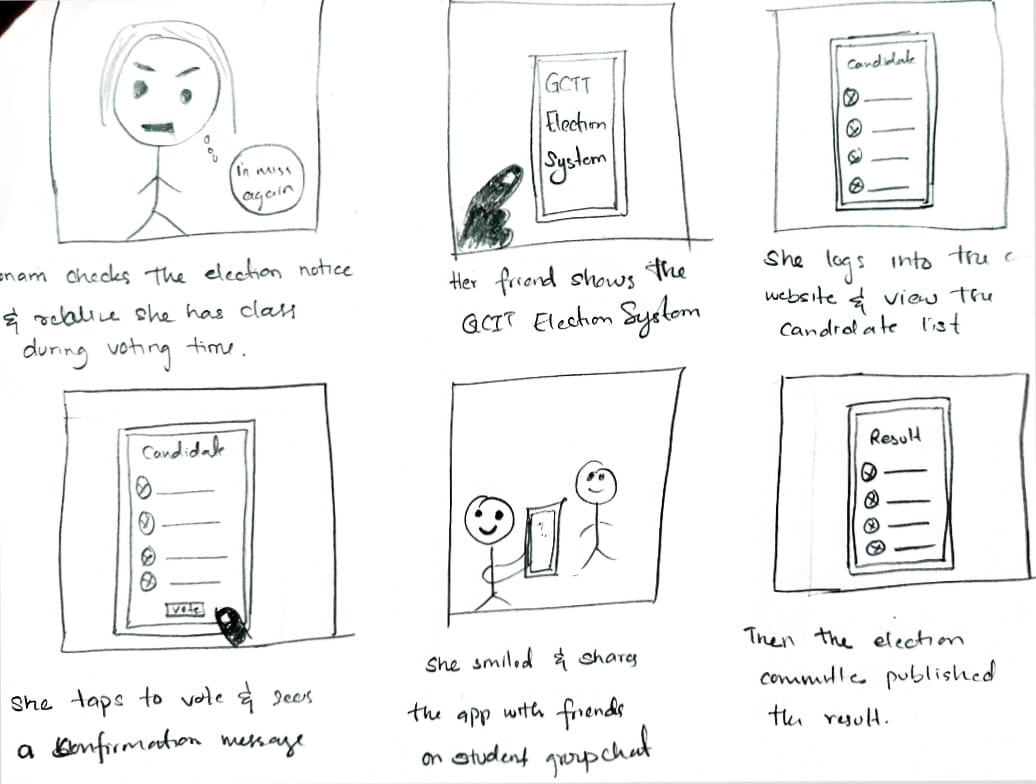 I'm miss
again
nam checks the election notice
& relalise she has class
during voting time.
GCIT
Election
System
Her friend shows the
GCIT Election System
Candidate
She logs into the
website & view the
candidate list
Candidate
Vote
She taps to vote & sees
a confirmation message
She smiled & shares
the app with friends
on student groupchat
Result
Then the election
committe published
the result.